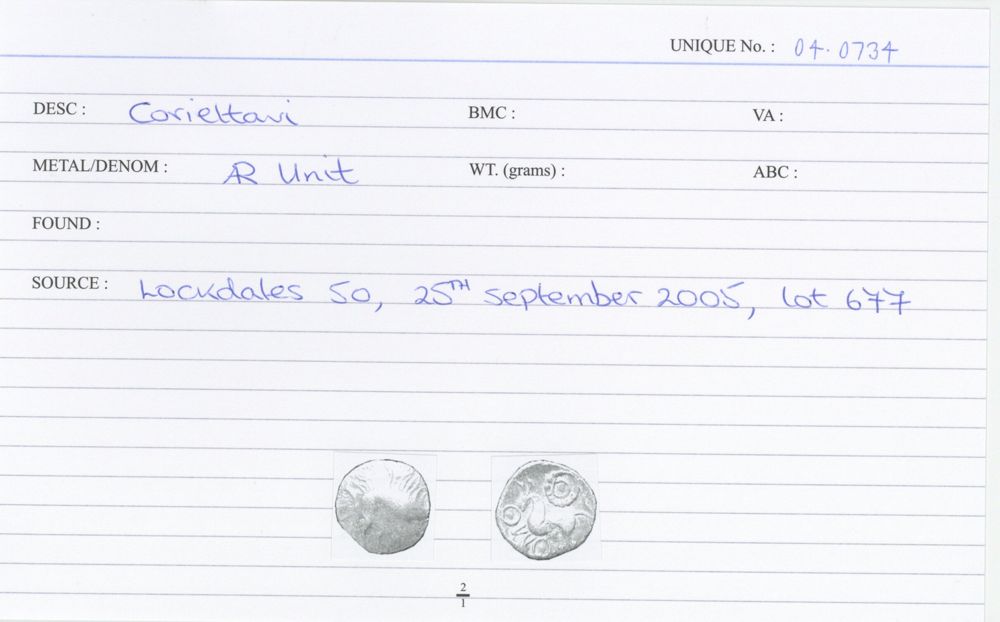 UNIQUE No. : 04.0734
DESC : Corieltavi BMC : VA :
METAL/DENOM : AR Unit WT. (grams) : ABC :
FOUND :
SOURCE : Lockdales 50, 25TH September 2005, lot 677
2
1